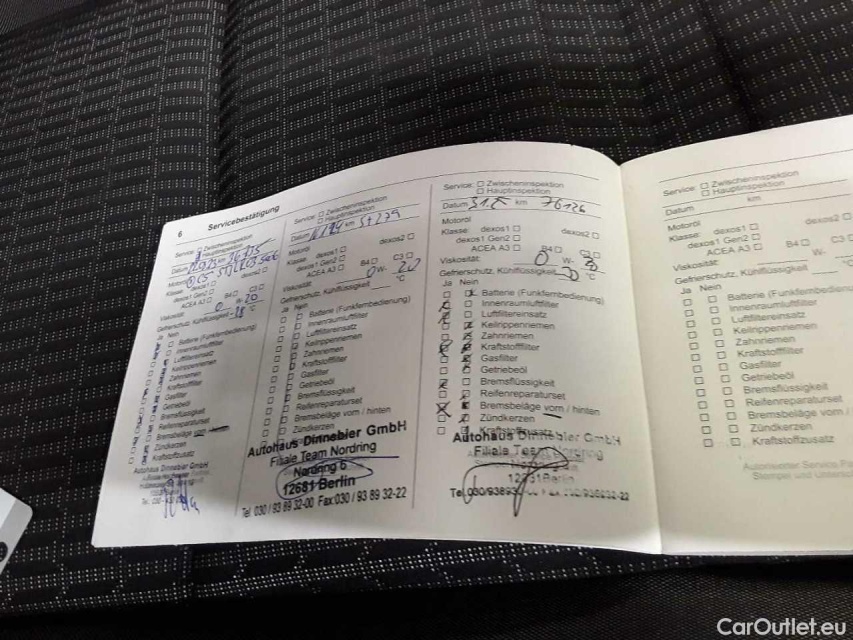 6 Servicebestätigung
Service: Zwischeninspektion
Hauptinspektion
Datum km
Motoröl
Klasse: dexos1 dexos2
dexos1 Gen2
ACEA A3 B4 C3
Viskosität: 0 W- 20
Gefrierschutz, Kühlflüssigkeit °C
Ja Nein
Batterie (Funkfernbedienung)
Innenraumluftfilter
Luftfiltereinsatz
Keilrippenriemen
Zahnriemen
Kraftstofffilter
Gasfilter
Getriebeöl
Bremsflüssigkeit
Reifenreparaturset
Bremsbeläge vorn
Zündkerzen
Kraftstoffzusatz
Autohaus Dinnebier GmbH
Service: Zwischeninspektion
Hauptinspektion
Datum km 57279
Motoröl
Klasse: dexos1 dexos2
dexos1 Gen2
ACEA A3 B4 C3
Viskosität: 0 W- 20
Gefrierschutz, Kühlflüssigkeit °C
Ja Nein
Batterie (Funkfernbedienung)
Innenraumluftfilter
Luftfiltereinsatz
Keilrippenriemen
Zahnriemen
Kraftstofffilter
Gasfilter
Getriebeöl
Bremsflüssigkeit
Reifenreparaturset
Bremsbeläge vorn / hinten
Zündkerzen
Autohaus Dinnebier GmbH
Filiale Team Nordring
Nordring 6
12681 Berlin
Tel 030 / 93 89 32-00 Fax:030 / 93 89 32-22
Service: Zwischeninspektion
Hauptinspektion
Datum km 76126
Motoröl
Klasse: dexos1 dexos2
dexos1 Gen2
ACEA A3 B4 C3
Viskosität: 0 W-
Gefrierschutz, Kühlflüssigkeit °C
Ja Nein
Batterie (Funkfernbedienung)
Innenraumluftfilter
Luftfiltereinsatz
Keilrippenriemen
Zahnriemen
Kraftstofffilter
Gasfilter
Getriebeöl
Bremsflüssigkeit
Reifenreparaturset
Bremsbeläge vorn / hinten
Zündkerzen
Kraftstoffzusatz
Autohaus Dinnebier GmbH
Filiale Team Nordring
Nordring
12681 Berlin
Service: Zwischeninspektion
Hauptinspektion
Datum km
Motoröl
Klasse: dexos1 dexos2
dexos1 Gen2
ACEA A3 B4 C3
Viskosität: W-
Gefrierschutz, Kühlflüssigkeit °C
Ja Nein
Batterie (Funkfernbedienung
Innenraumluftfilter
Luftfiltereinsatz
Keilrippenriemen
Zahnriemen
Kraftstofffilter
Gasfilter
Getriebeöl
Bremsflüssigkeit
Reifenreparaturset
Bremsbeläge vorn /
Zündkerzen
Kraftstoffzusatz
Autorisierter Service-Pa
Stempel und Unterschri
CarOutlet.eu